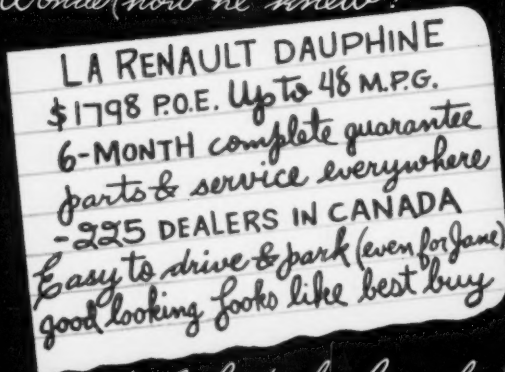 Wonder how he knew?
LA RENAULT DAUPHINE
$1798 P.O.E. Up to 48 M.P.G.
6-MONTH complete guarantee
parts & service everywhere
-225 DEALERS IN CANADA
Easy to drive & park (even for Jane)
good looking looks like best buy